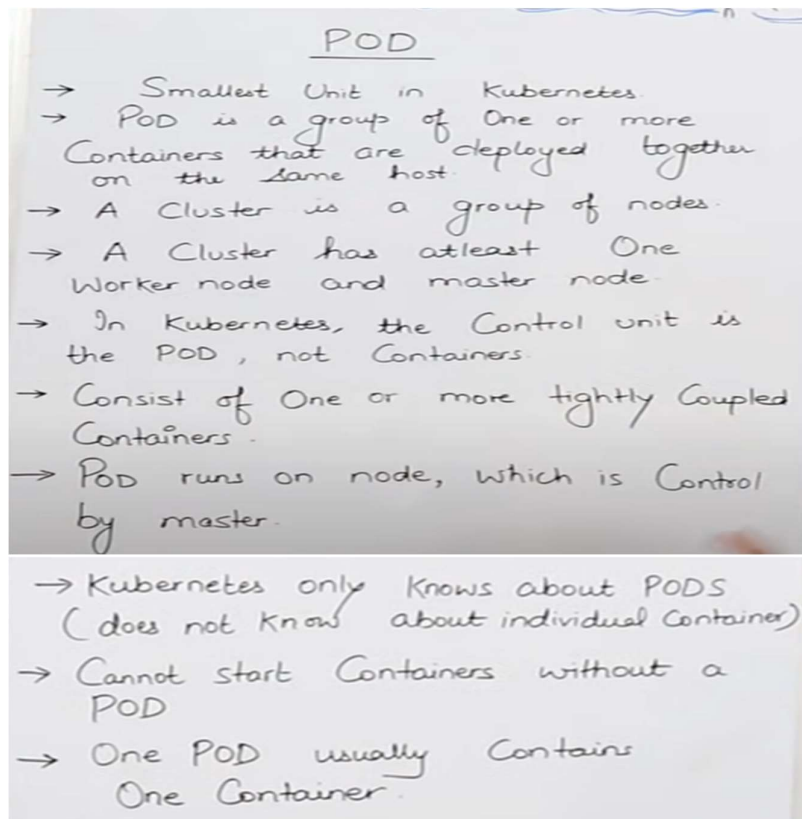 POD
→ Smallest Unit in Kubernetes.
→ POD is a group of One or more
Containers that are deployed together
on the same host.
→ A Cluster is a group of nodes.
→ A Cluster has atleast One
Worker node and master node.
→ In Kubernetes, the Control unit is
the POD, not Containers.
→ Consist of One or more tightly Coupled
Containers.
→ POD runs on node, which is Control
by master.
→ Kubernetes only Knows about PODS
(does not Know about individual Container)
→ Cannot start Containers without a
POD
→ One POD usually Contains
One Container.